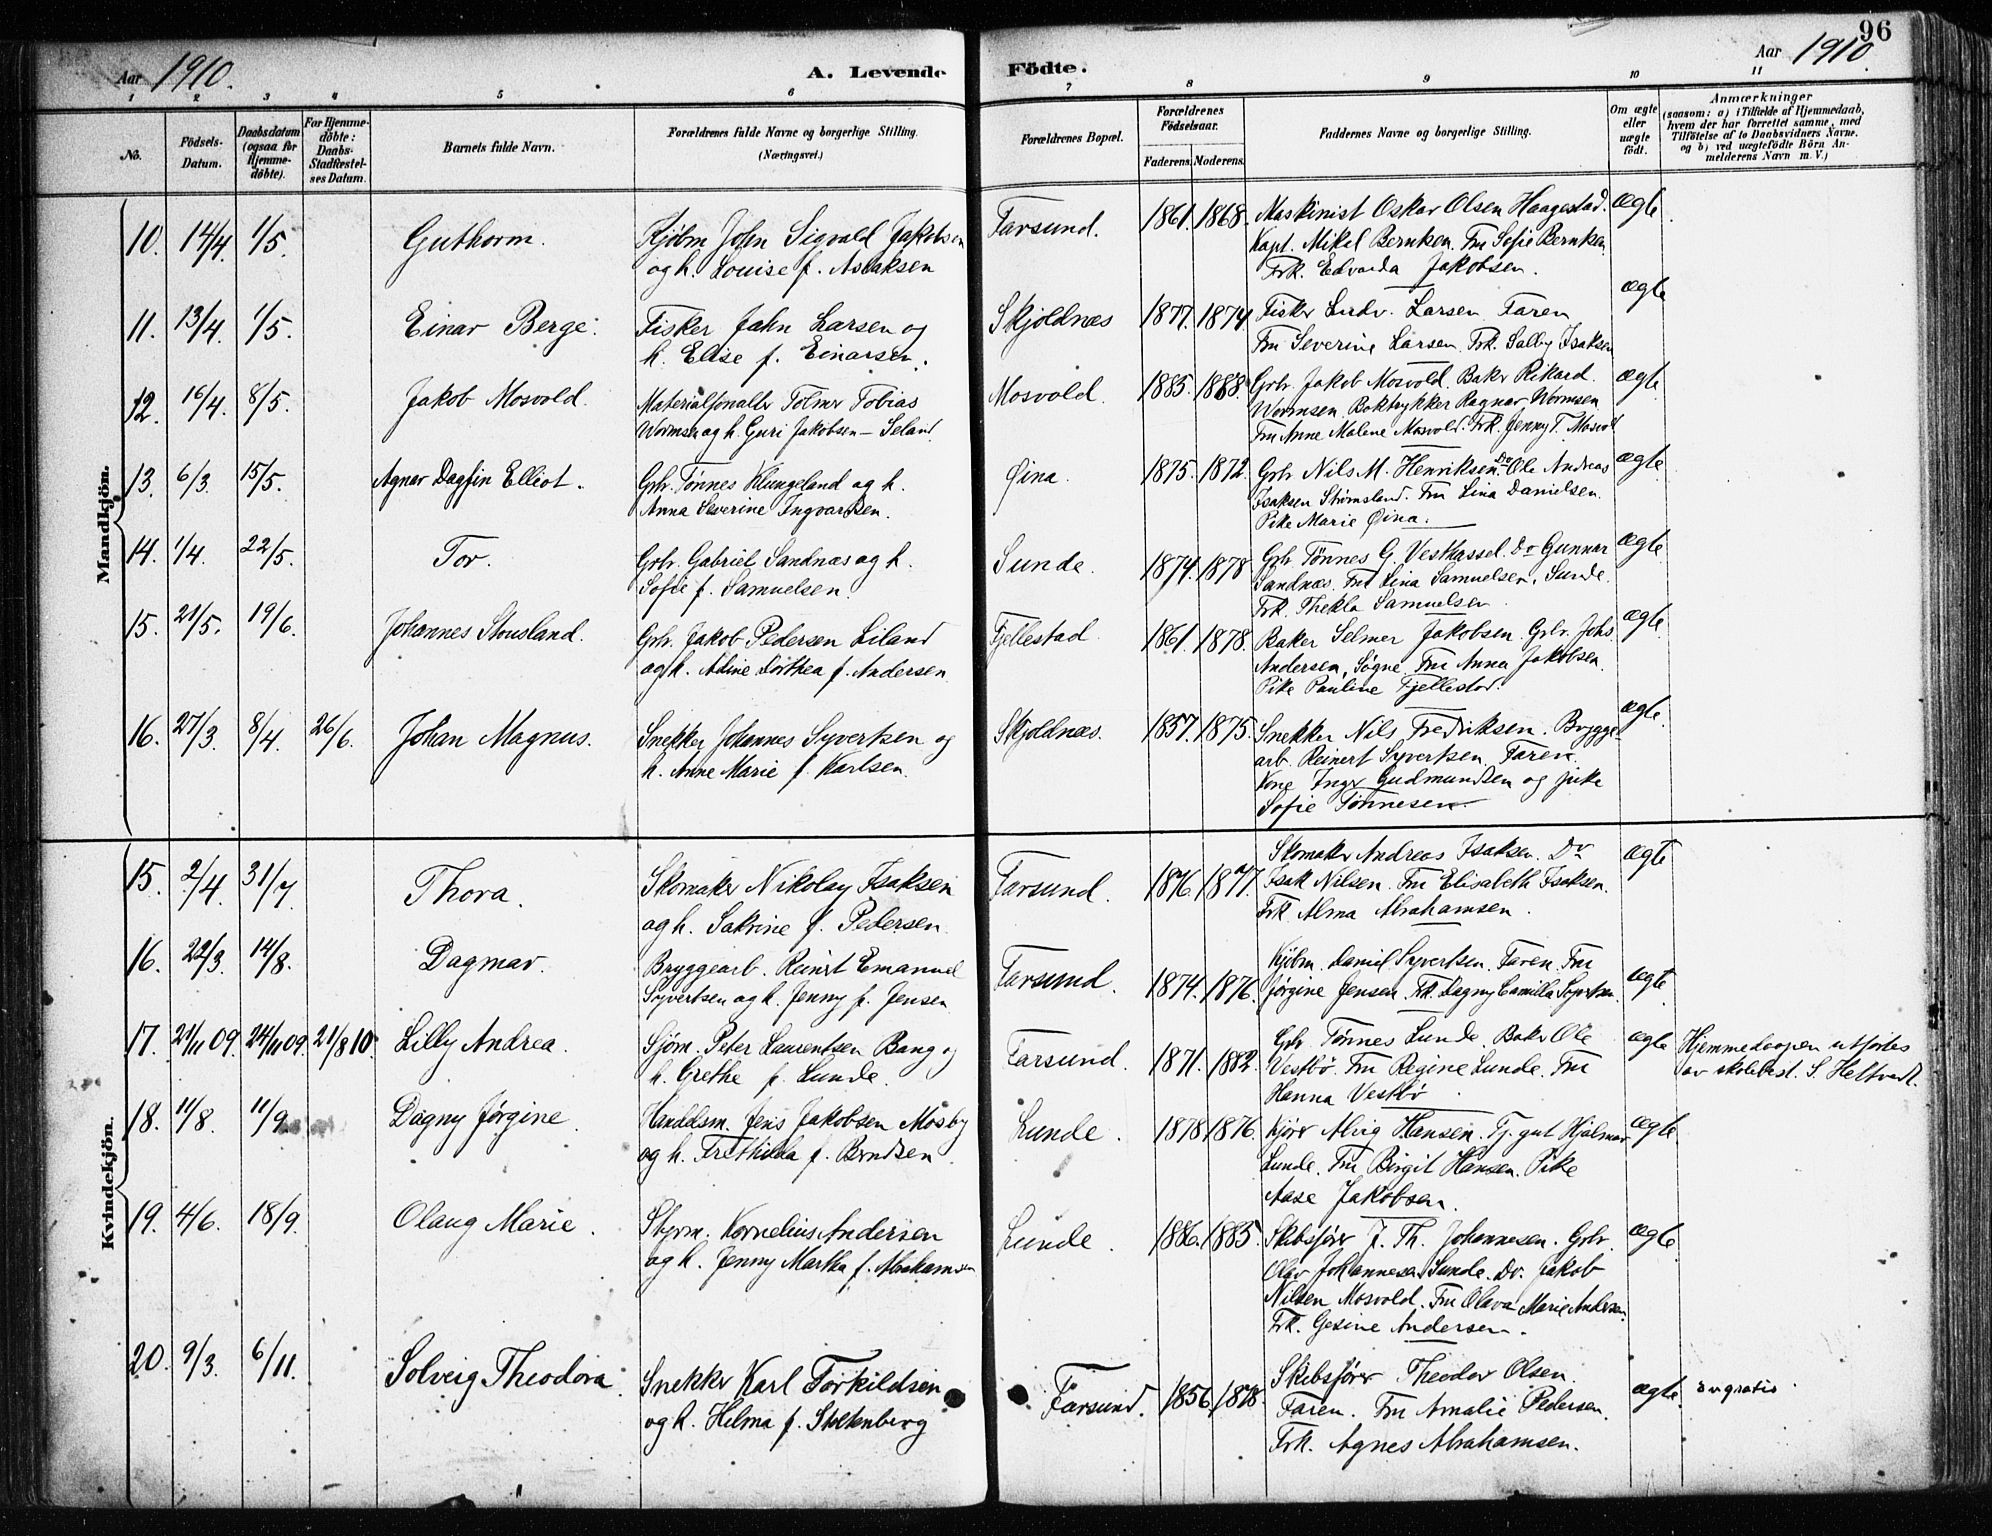 96
Aar 1910. A. Levende Födte. Aar 1910
1 2 3 4 5 6 7 8 9 10 11
No.
Födsels-
Datum.
Daabsdatum
(ogsaa for
Hjemme-
döbte).
For Hjemme-
döbte:
Daabs-
Stadfæstel-
ses Datum.
Barnets fulde Navn.
Forældrenes fulde Navne og borgerlige Stilling.
(Næringsvei.)
Forældrenes Bopæl.
Forældrenes
Födselsaar.
Faderens. Moderens.
Faddernes Navne og borgerlige Stilling.
Om ægte
eller
uægte
födt.
Anmærkninger
(saasom: a) i Tilfælde af Hjemmedaab,
hvem der har forrettet samme, med
Tilföielse af to Daabsvidners Navne.
og b) ved uægtefödte Börn An-
melderens Navn m. V.)
Mandkjön.
10. 14/4 1/5. Guthorm. Kjøbm John Sigvald Jakobsen Farsund. 1861. 1868. Maskinist Oskar Olsen Haagestad. ægte
og h. Louise f. Aslaksen Kapt. Mikel Bernken. Fru Sofie Bernken
Frk. Edvarda Jakobsen.
11. 13/4 1/5. Einar Berge. Fisker John Larsen og Skjoldnæs 1877. 1874. Fisker Ludv. Larsen Faren ægte
h. Elise f. Einarsen. Fru Severine Larsen. Frk. Salby Isaksen
12. 16/4. 8/5. Jakob Mosvold. Materialforvalter Tolmer Tobias Mosvold. 1885. 1888. Grbr. Jakob Mosvold. Baker Rikard ægte
Wormsen og h. Guri Jakobsen – Seland Wormsen. Boktrykker Ragnar Wormsen
Fru Anne Malene Mosvold. Frk. Jenny T. Mosvold
13. 6/3. 15/5. Agnar Dagfin Elliot. Grbr. Tønnes Klungeland og h. Øina. 1875. 1872. Grbr Nils M. Henriksen. Do Ole Andreas ægte
Anna Severine Ingvartsen. Isaksen Strømsland. Fru Lina Danielsen.
Pike Marie Øina.
14. 1/4. 22/5. Tor. Grbr. Gabriel Sandnæs og h. Sunde. 1874. 1878 Grbr Tønnes G. Vesthassel. Do Gunnar ægte
Sofie f. Samuelsen. Sandnæs. Fru Lina Samuelsen, Sunde.
Frk. Thekla Samuelsen
15. 21/5. 19/6. Johannes Stousland. Grbr. Jakob Pedersen Liland Fjellestad. 1861. 1878. Baker Selmer Jakobsen. Grbr. Johs. ægte
og h. Adine Dorthea f. Andersen Andersen, Søgne. Fru Anna Jakobsen.
Pike Pauline Fjellestad.
16. 27/3. 8/4. 26/6. Johan Magnus. Snekker Johannes Syvertsen og Skjoldnæs. 1857. 1875. Snekker Nils Fredriksen. Brygge- ægte.
h. Anne Marie f. Karlsen. arb. Reinert Syvertsen. Faren.
Kone Inger Gudmundsen og pike
Sofie Tønnesen.
Kvindekjön.
15. 2/4. 31/7. Thora. Skomaker Nikolay Isaksen Farsund. 1876. 1877. Skomaker Andreas Isaksen. Do ægte
og h. Sakrine f. Pedersen. Isak Nilsen. Fru Elisabeth Isaksen.
Frk. Alma Abrahamsen.
16. 22/3. 14/8. Dagmar. Bryggearb. Reinert Emanuel Farsund. 1874. 1876. Kjøbm. Daniel Syvertsen. Faren. Fru ægte
Syvertsen og h. Jenny f. Jensen Jørgine Jensen Frk. Dagny Camilla Syvertsen
17. 21/11 09. 24/11 09. 21/8 10. Lilly Andrea. Sjøm. Peter Laurentsen Bang og Farsund. 1871. 1882. Grbr Tønnes Lunde. Baker Ole ægte Hjemmedaapen utførtes
h. Grethe f. Lunde. Vestbø. Fru Regine Lunde. Fru av skolebest. S. Heltvedt.
Hanna Vestbø
18. 11/8. 11/9. Dagny Jørgine. Handelsm. Jens Jakobsen Mosby Lunde. 1878 1876. Kjører Alvig Hansen. Tj. gut Hjalmar ægte
og h. Trethilda f. Berndsen. Lunde. Fru Birgit Hansen. Pike
Aase Jakobsen.
19. 4/6. 18/9. Olaug Marie. Styrm. Kornelius Andersen Lunde. 1886. 1885. Skibsfører J. Th. Johannesen. Grbr. ægte
og h. Jenny Martha f. Abrahamsen Olav Johannesen Sunde. Do. Jakob
Nilsen Mosvold. Fru Olava Marie Andersen
Frk. Gesine Andersen.
20. 9/3. 6/11. Solveig Theodora. Snekker Karl Torkildsen Farsund. 1856 1878. Skibsfører Theodor Olsen. ægte. gratis.
og h. Helma f. Stoltenberg Faren. Fru Amalie Pedersen.
Frk. Agnes Abrahamsen.